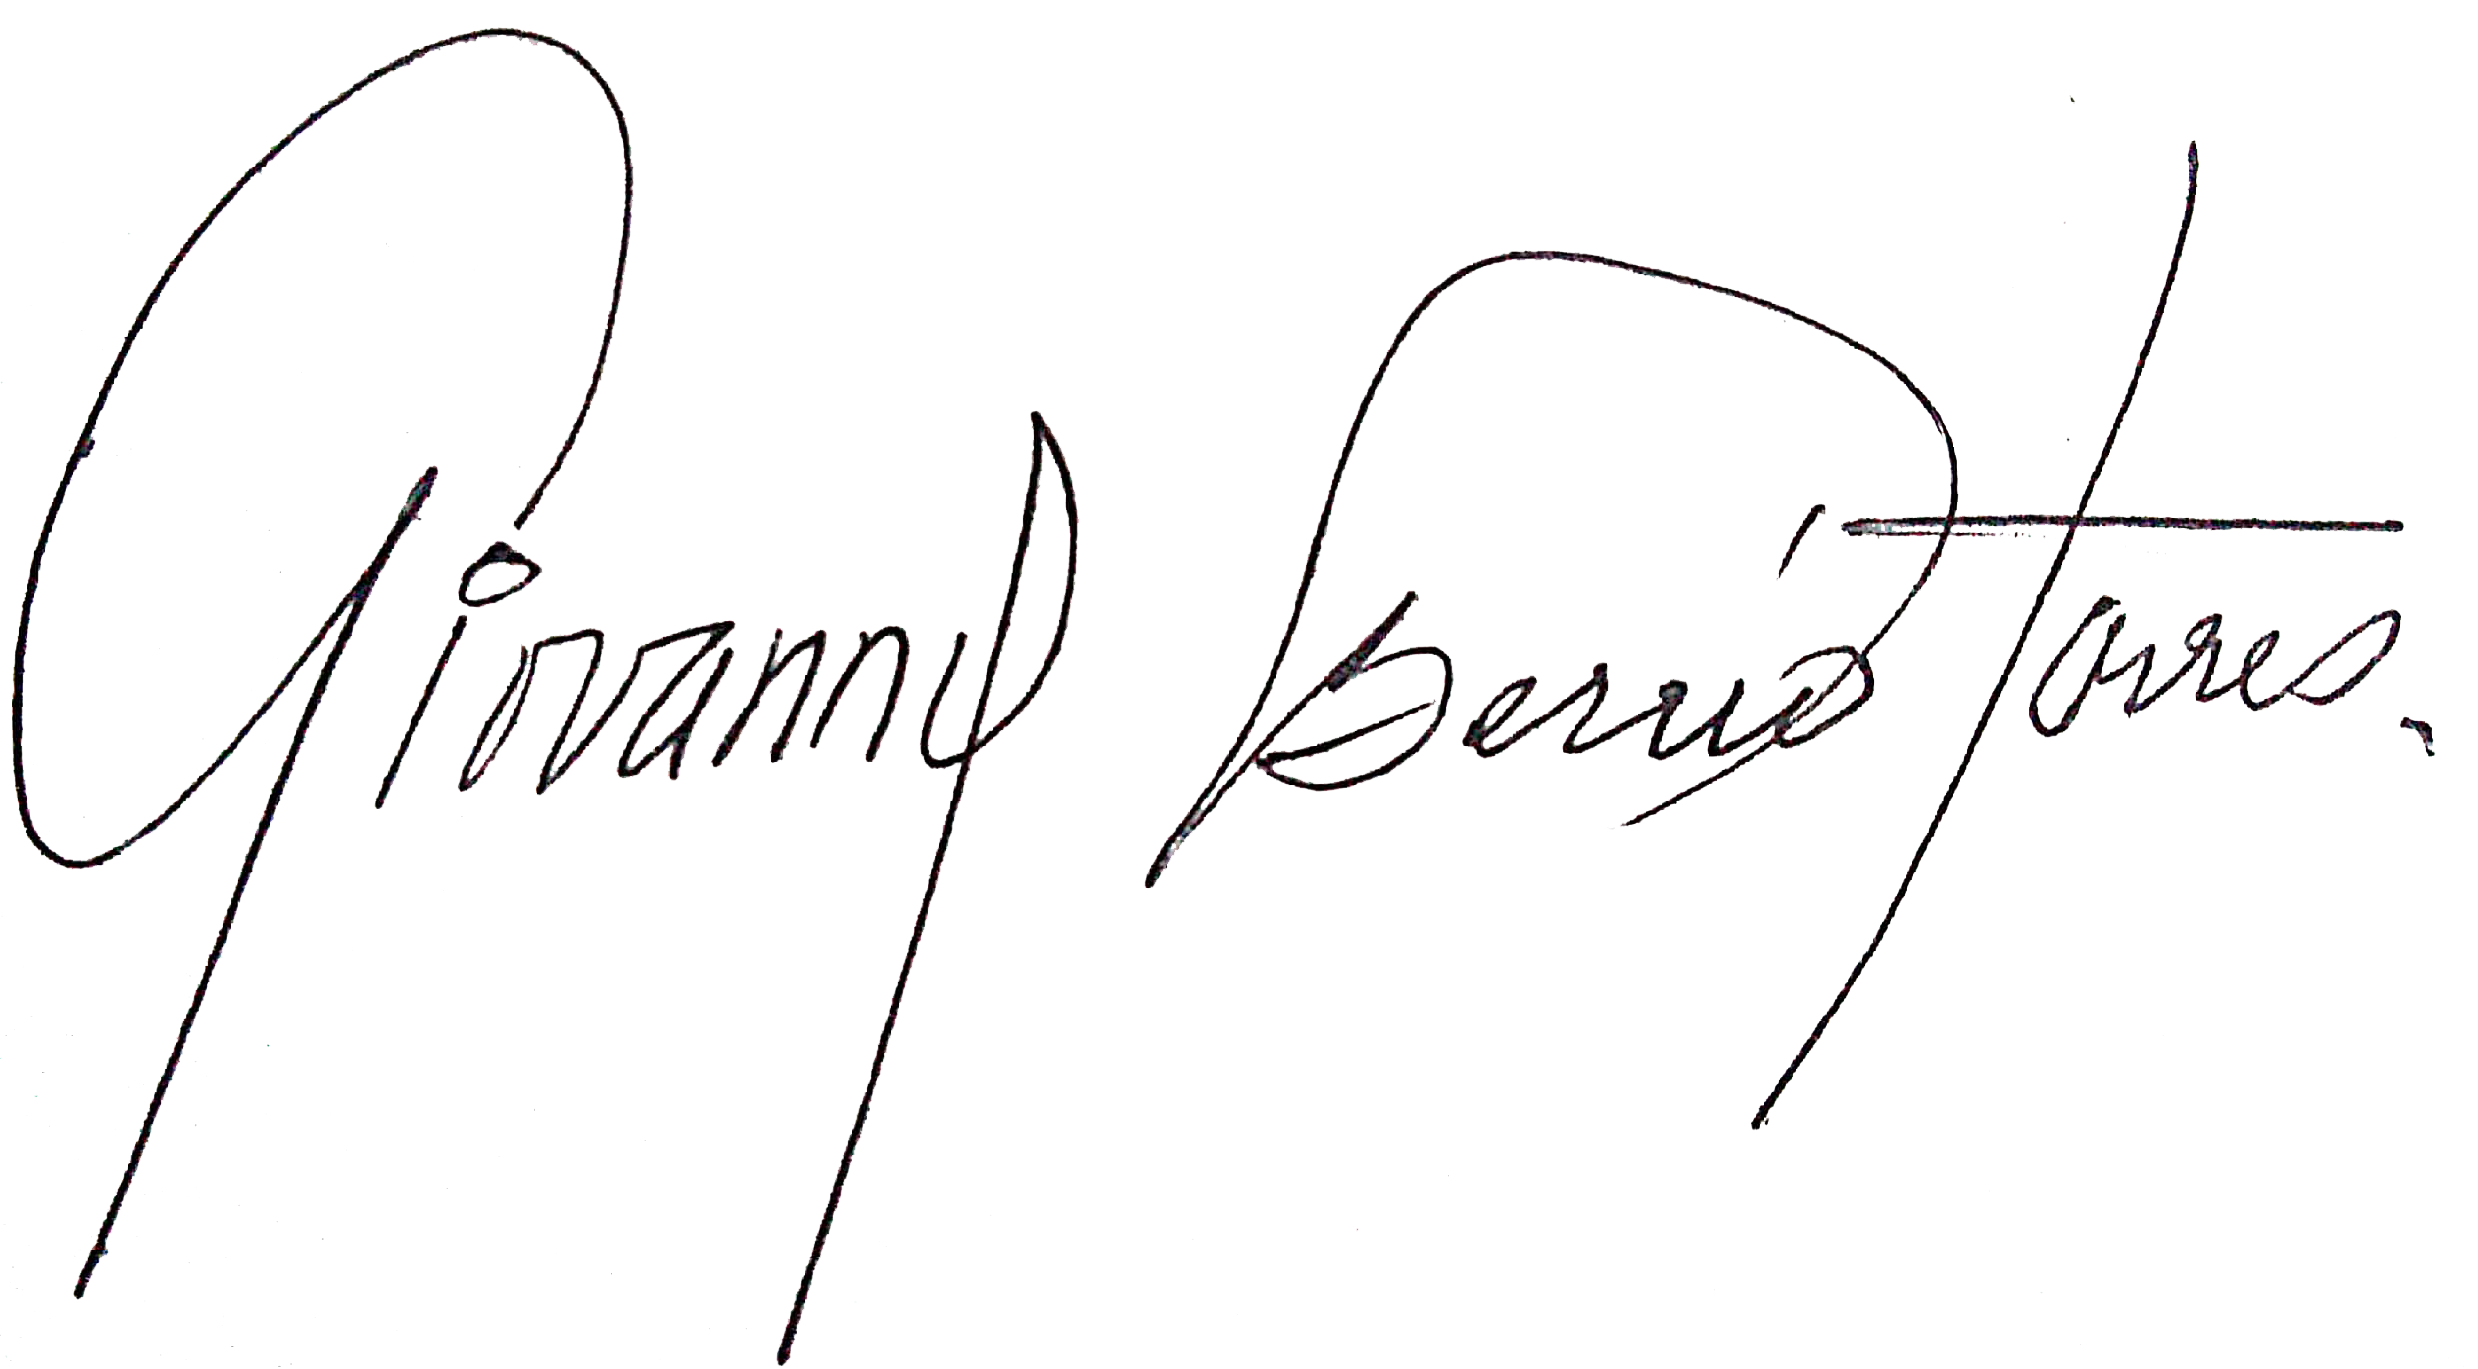 Giovanny Berrío Torres.